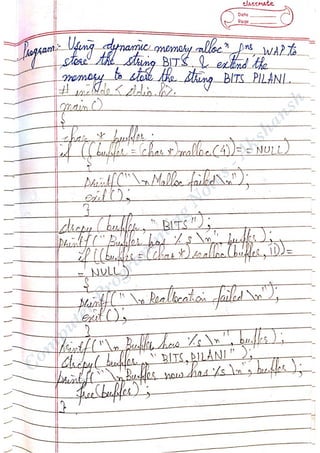 classmate
Date
Page
Program:- Using dynamic memory allocⁿ fns WAP to
store the string BITS & extend the
memory to store the string BITS PILANI.
# include < stdio.h>
main()
{
char * buffer;
if ((buffer = (char *) malloc(4)) = = NULL)
{
printf(" \n Malloc failed \n");
exit();
}
strcpy (buffer, "BITS");
printf(" Buffer has %s \n", buffer);
if ((buffer = (char *) realloc (buffer, 10)) =
= NULL)
{
printf(" \n Reallocation failed \n");
exit();
}
printf("\n Buffer has %s \n", buffer);
strcpy( buffer, "BITS,PILANI");
printf("\n Buffer now has %s \n", buffer);
free(buffer);
}